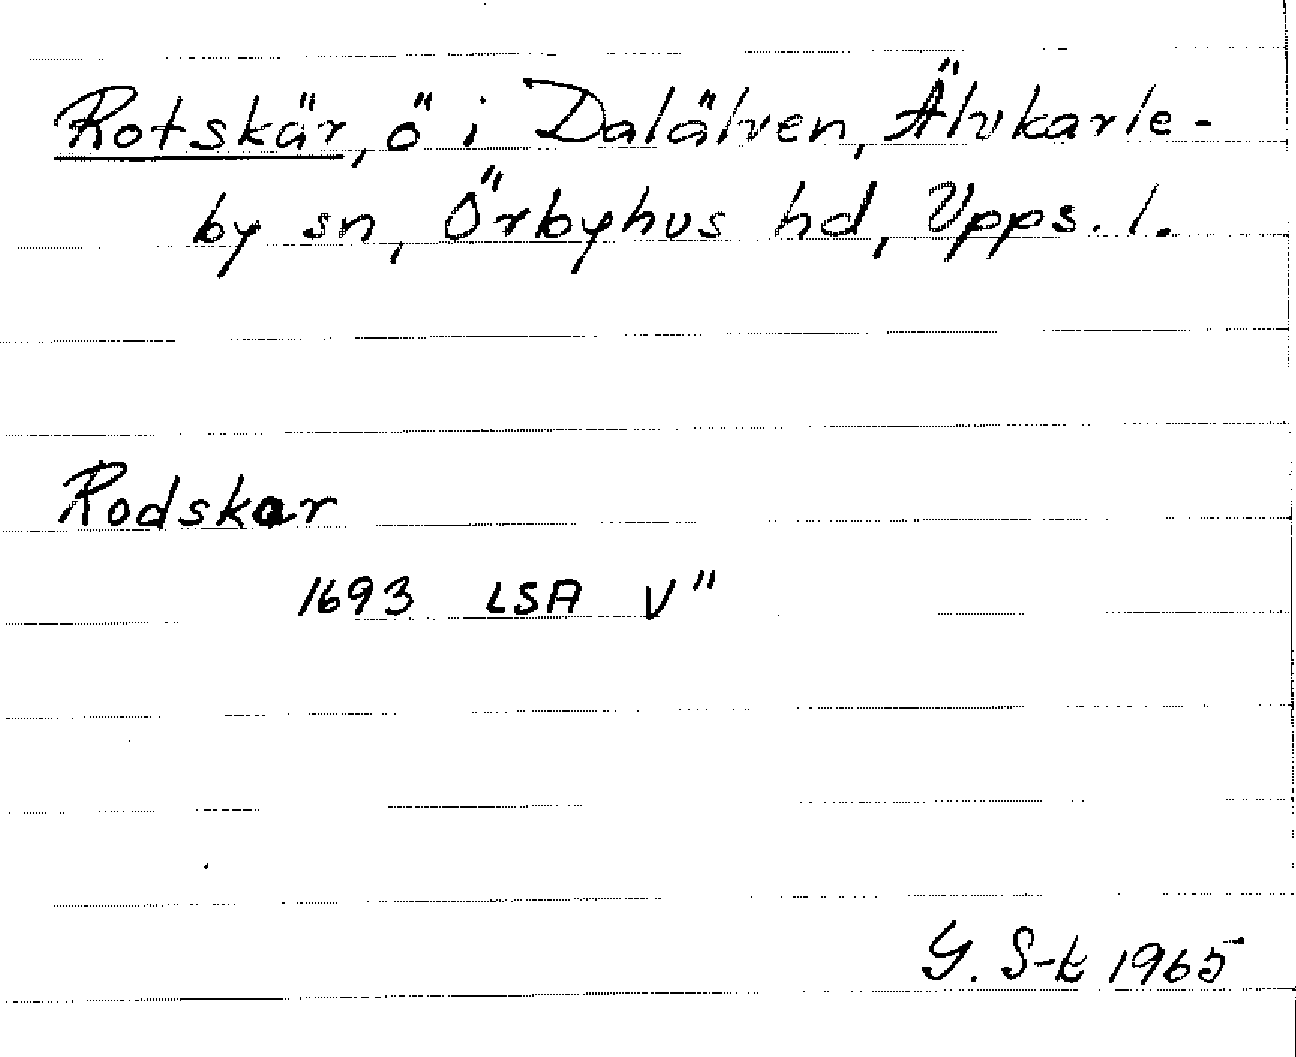 Rotskär, ö i Dalälven, Älvkarle-
by sn, Örbyhus hd, Upps. l.
Rodskar
1693 LSA V"
G. S-k 1965